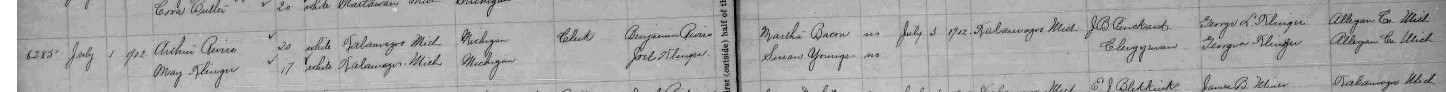 Cora Butler 20 white Mattawan Mich Michigan
6285 July 1 1902 Arthur Rivers 20 white Kalamazoo Mich Michigan Clerk Benjamin Rivers Martha Bacon no July 3 1902 Kalamazoo Mich J.B. Pinckard George L. Klinger Allegan Co. Mich
May Klinger 17 white Kalamazoo Mich Michigan Joel Klinger Susan Young no Clergyman Georgia Klinger Allegan Co. Mich
first (outside) half of th
E. J. Blekkink James B. Kalamazoo Mich